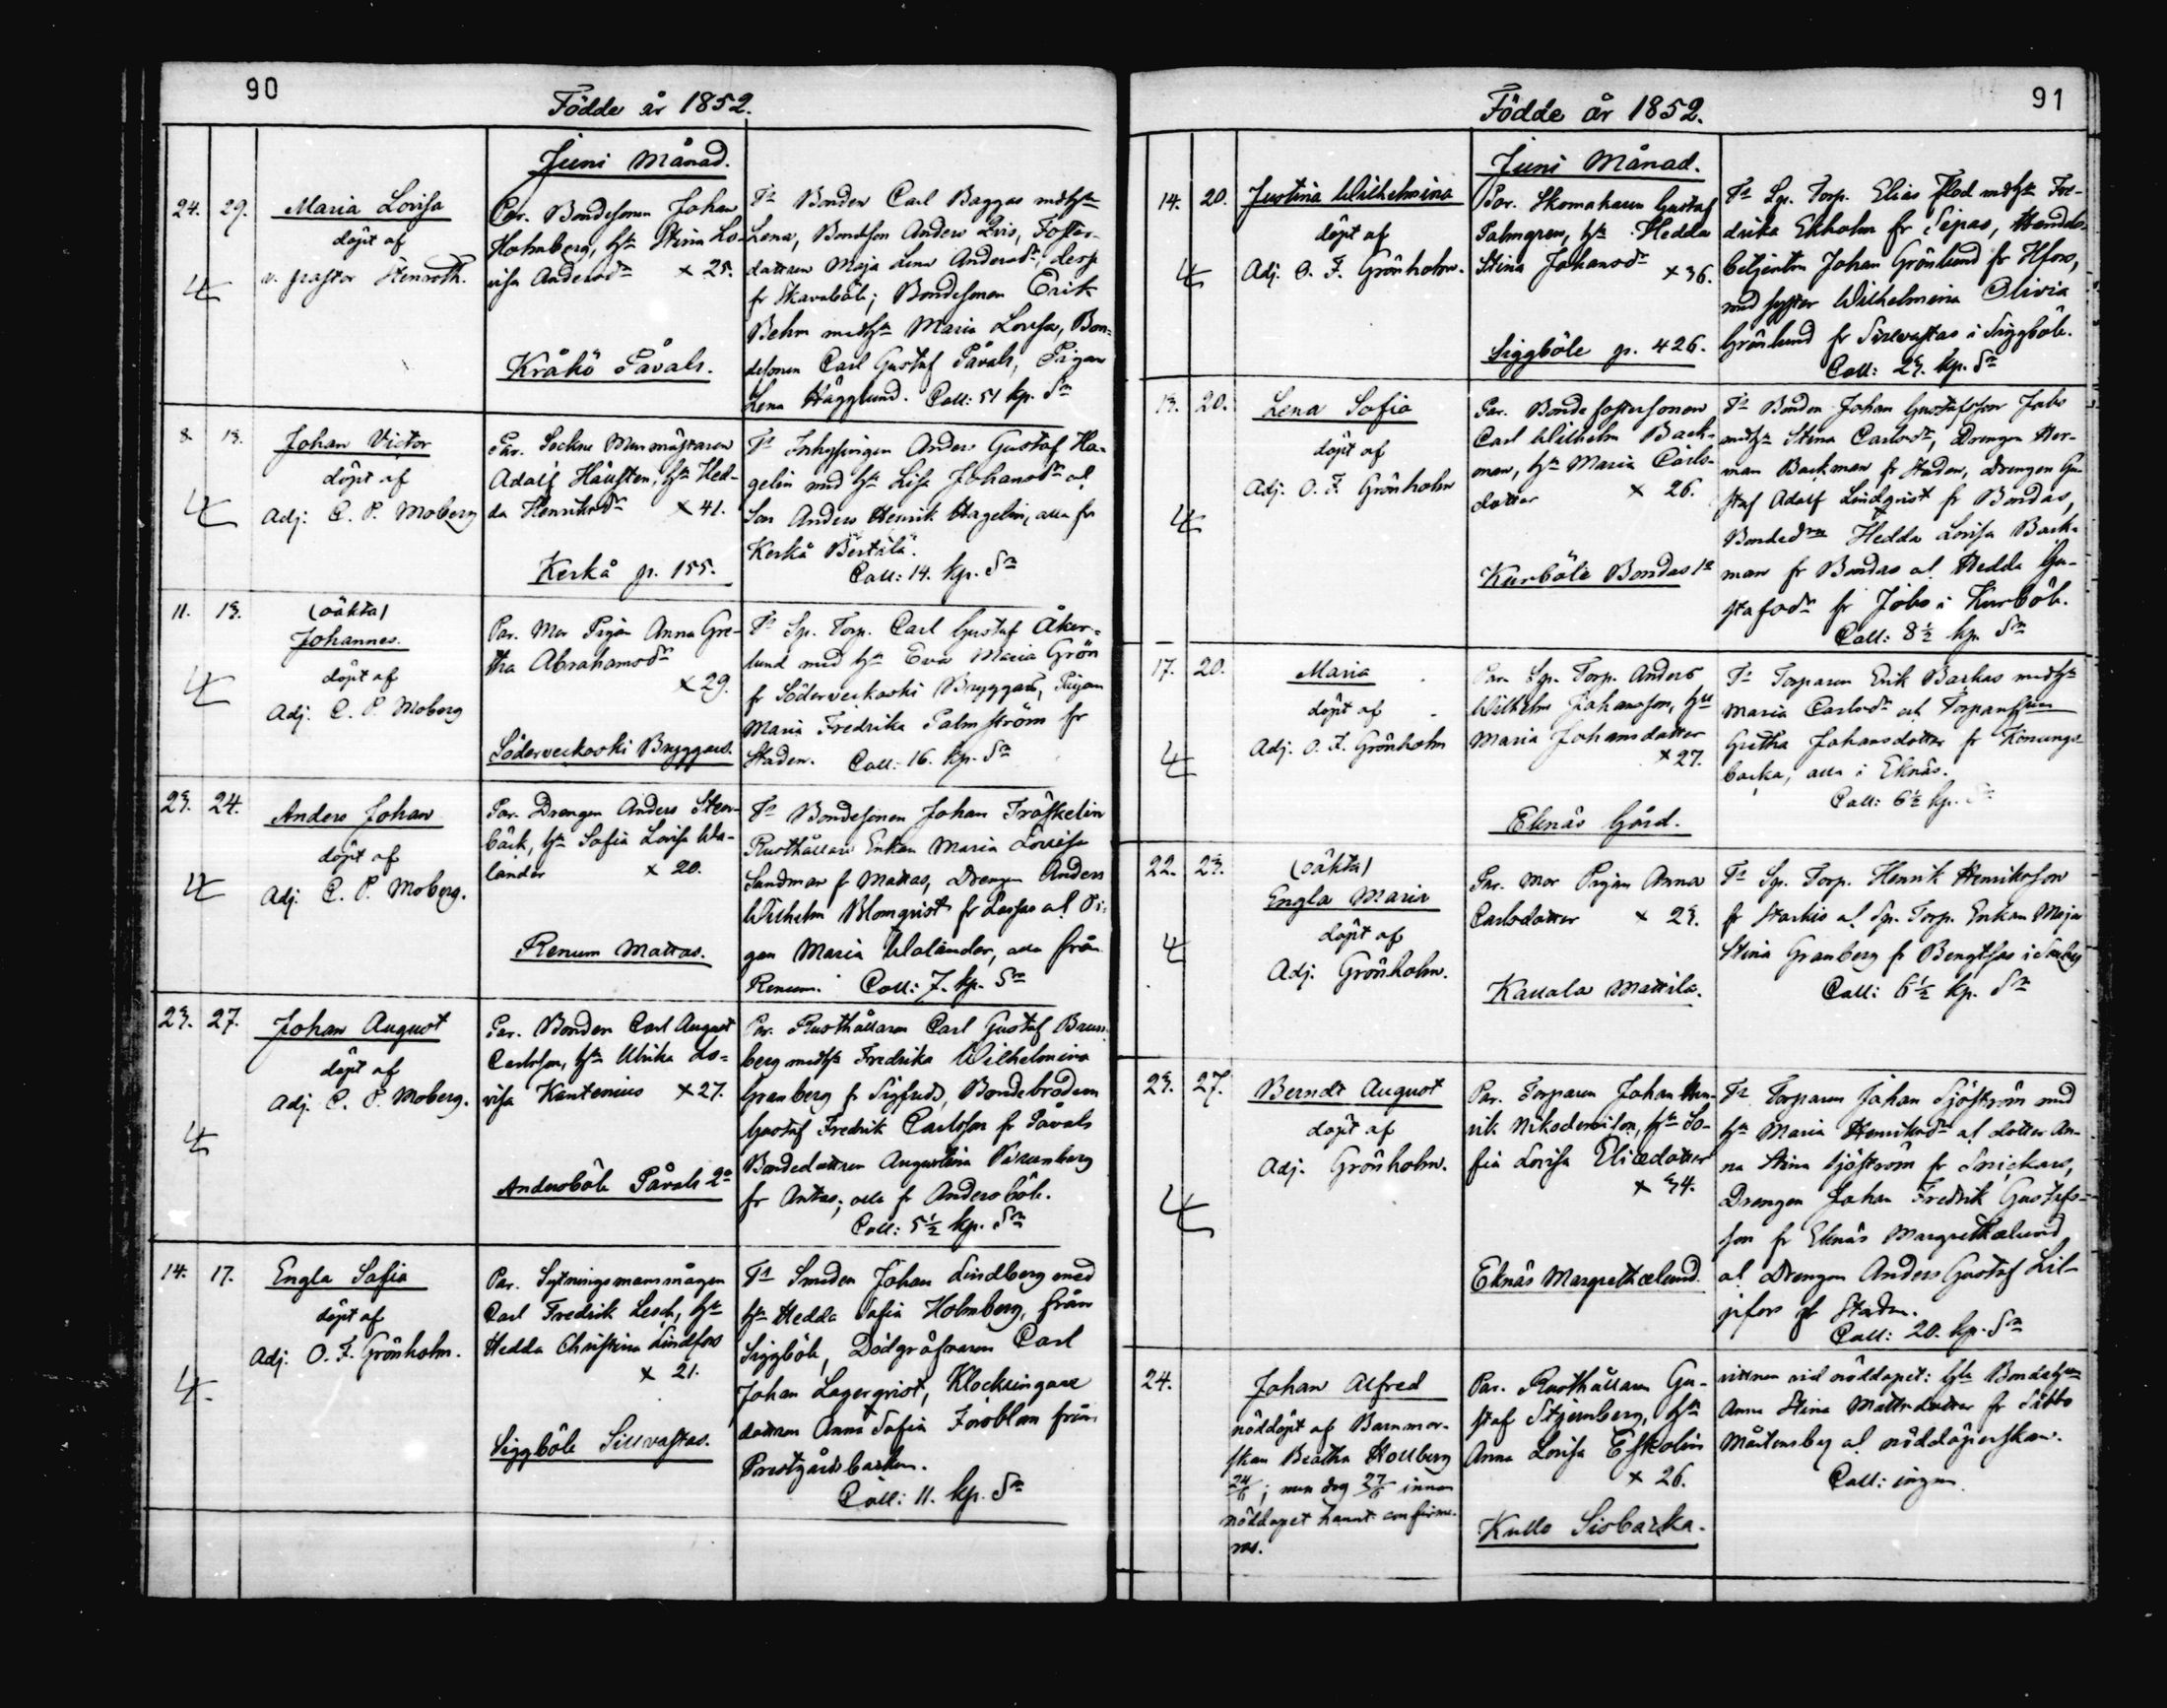 90
Födde år 1852.
Juni Månad.
24. 29. Maria Lovisa
döpt af
v. pastor Stenroth.
Par. Bondesonen Johan
Holmberg, hn Stina Lo-
visa Andersdr × 25.
Kråkö Påvals.
Fr Bonden Carl Baggas medhn
Lena, Bondeson Anders Qvis, Foster-
dottren Maja Lena Andersdr, desp
fr Skavaböle; Bondesonen Erik
Behm medhn Maria Lovisa, Bon-
desonen Carl Gustaf Påvals, Pigan
Lena Hägglund. Coll: 51 kp. Sr
8 13. Johan Victor
döpt af
Adj. C. P. Moberg
Par. Sockne Murmästaren
Adolf Häusten, hn Hed-
da Henriksdr × 41.
Kerkå p. 155.
Fr Inhysingen Anders Gustaf Ha-
gelin med hn Lisa Johansdr al
Son Anders Henrik Hagelin, alla fr
Kerkå Bertilä.
Coll: 14. kp. Sr
11. 13. (oäkta)
Johannes.
döpt af
Adj. C. P. Moberg
Par. Mor Pigan Anna Gre-
tha Abrahamsdr
× 29.
Söderveckoski Bryggars.
Fr Sp. Torp. Carl Gustaf Åker-
lund med hn Eva Maria Grön
fr Söderveckoski Bryggars, Pigan
Maria Fredrika Palmström fr
Staden. Coll: 16. kp. Sr
23. 24. Anders Johan
döpt af
Adj. C. P. Moberg.
Par. Drengen Anders Sten-
bäck, hn Sofia Lovisa Wa-
länder × 20.
Renum Mattas.
Fr Bondesonen Johan Träskelin
Rusthållare Enkan Maria Lovisa
Sandman fr Mattas, Drengen Anders
Wilhelm Blomqvist fr Lassas al Pi-
gan Maria Waländer, alla från
Renum. Coll: 7. kp. Sr
23. 27. Johan August
döpt af
Adj. C. P. Moberg.
Par. Bonden Carl August
Carlsson, hn Ulrika Lo-
visa Kantenius × 27.
Andersböle Påvals 2a
Par. Rusthållaren Carl Gustaf Brun-
berg medhn Fredrika Wilhelmina
Granberg fr Sigfreds, Bondebrodren
Gustaf Fredrik Carlsson fr Påvals
Bondedottren Augustina
fr Antas, alla fr Andersböle.
Coll: 5½ kp. Sr
14. 17. Engla Sofia
döpt af
Adj. O. F. Grönholm.
Par. Sytningsmansmågen
Carl Fredrik Lesch, hn
Hedda Christina Lindfors
× 21.
Siggböle Sillvastas.
Fr Smeden Johan Lindberg med
hn Hedda Sofia Holmberg, från
Siggböle, Dödgräfvaren Carl
Johan Lagerqvist, Klockringare
dottren Anna Sofia Forsblom från
Prestgårdsbacken.
Coll: 11. kp. Sr
91
Födde år 1852.
Juni Månad.
14. 20. Justina Wilhelmina
döpt af
Adj. O. F. Grönholm.
Par. Skomakaren Gustaf
Palmgren, hn Hedda
Stina Johansdr × 36.
Siggböle p. 426.
Fr Sp. Torp. Elias Flod medhn Fre-
drika Ekholm fr Sepas, Handels
betjenten Johan Grönlund fr Hfors,
med syster Wilhelmina Olivia
Grönlund fr Sillvastas i Siggböle.
Coll: 23. kp. Sr
13. 20. Lena Sofia
döpt af
Adj. O. F. Grönholm
Par. Bonde fostersonen
Carl Wilhelm Back-
man, hn Maria Carls-
dotter × 26.
Kurböle Bondas 1a
Fr Bonden Johan Gustafsson Jobs
medhn Stina Carlsdr, Drengen Her-
man Backman fr Staden, Drengen Gu-
staf Adolf Lindqvist fr Bondas,
Bondedrn Hedda Lovisa Back-
man fr Bondas al Hedda Gu-
stafsdr fr Jobs i Kurböle.
Coll: 8½ kp. Sr
17. 20. Maria
döpt af
Adj. O. F. Grönholm
Par. Sp. Torp. Anders
Wilhelm Johansson, hn
Maria Johansdotter
× 27.
Eknäs Gård.
Fr Torparen Erik Backas medhn
Maria Carlsdr och Torparehun
Gretha Johansdotter fr Konungs-
backa, alla i Eknäs.
Coll: 6½ kp. Sr
22. 23. (oäkta)
Engla Maria
döpt af
Adj. Grönholm.
Par. Mor Pigan Anna
Carlsdotter × 23.
Kallola Mattila.
Fr Sp. Torp. Henrik Henriksson
fr Starkis al Sp. Torp. Enkan Maja
Stina Granberg fr Bengtsas i
Coll: 6½ kp. Sr
23. 27. Berndt August
döpt af
Adj. Grönholm.
Par. Torparen Johan Hen-
rik Nikodemison, hn So-
fia Lovisa Eliædotter
× 34.
Eknäs Margrethælund.
Fr Torparen Johan Sjöström med
hn Maria Henriksdr al dotter An-
na Stina Sjöström fr Snickars,
Drengen Johan Fredrik Gustafs-
son fr Eknäs Margrethælund
al Drengen Anders Gustaf Lil-
jefors fr Staden.
Coll: 20. kp. Sr
24. Johan Alfred
nöddöpt af Barnmor-
skan Beatha Hollberg
24/6; men dog 27/6 innan
nöddopet hannt confirme-
ras.
Par. Rusthållaren Gu-
staf Stjernberg, hn
Anna Lovisa Eskolin
× 26.
Kullo Sisbacka.
vittnen vid nöddopet:
Anna Stina Mattsdotter fr Sibbo
Mårtensby al nöddöperskan.
Coll: ingen.